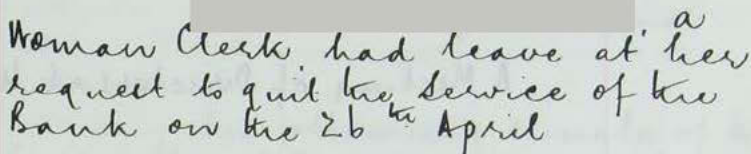 a
Woman Clerk had leave at her
request to quit the Service of the
Bank on the 26th April